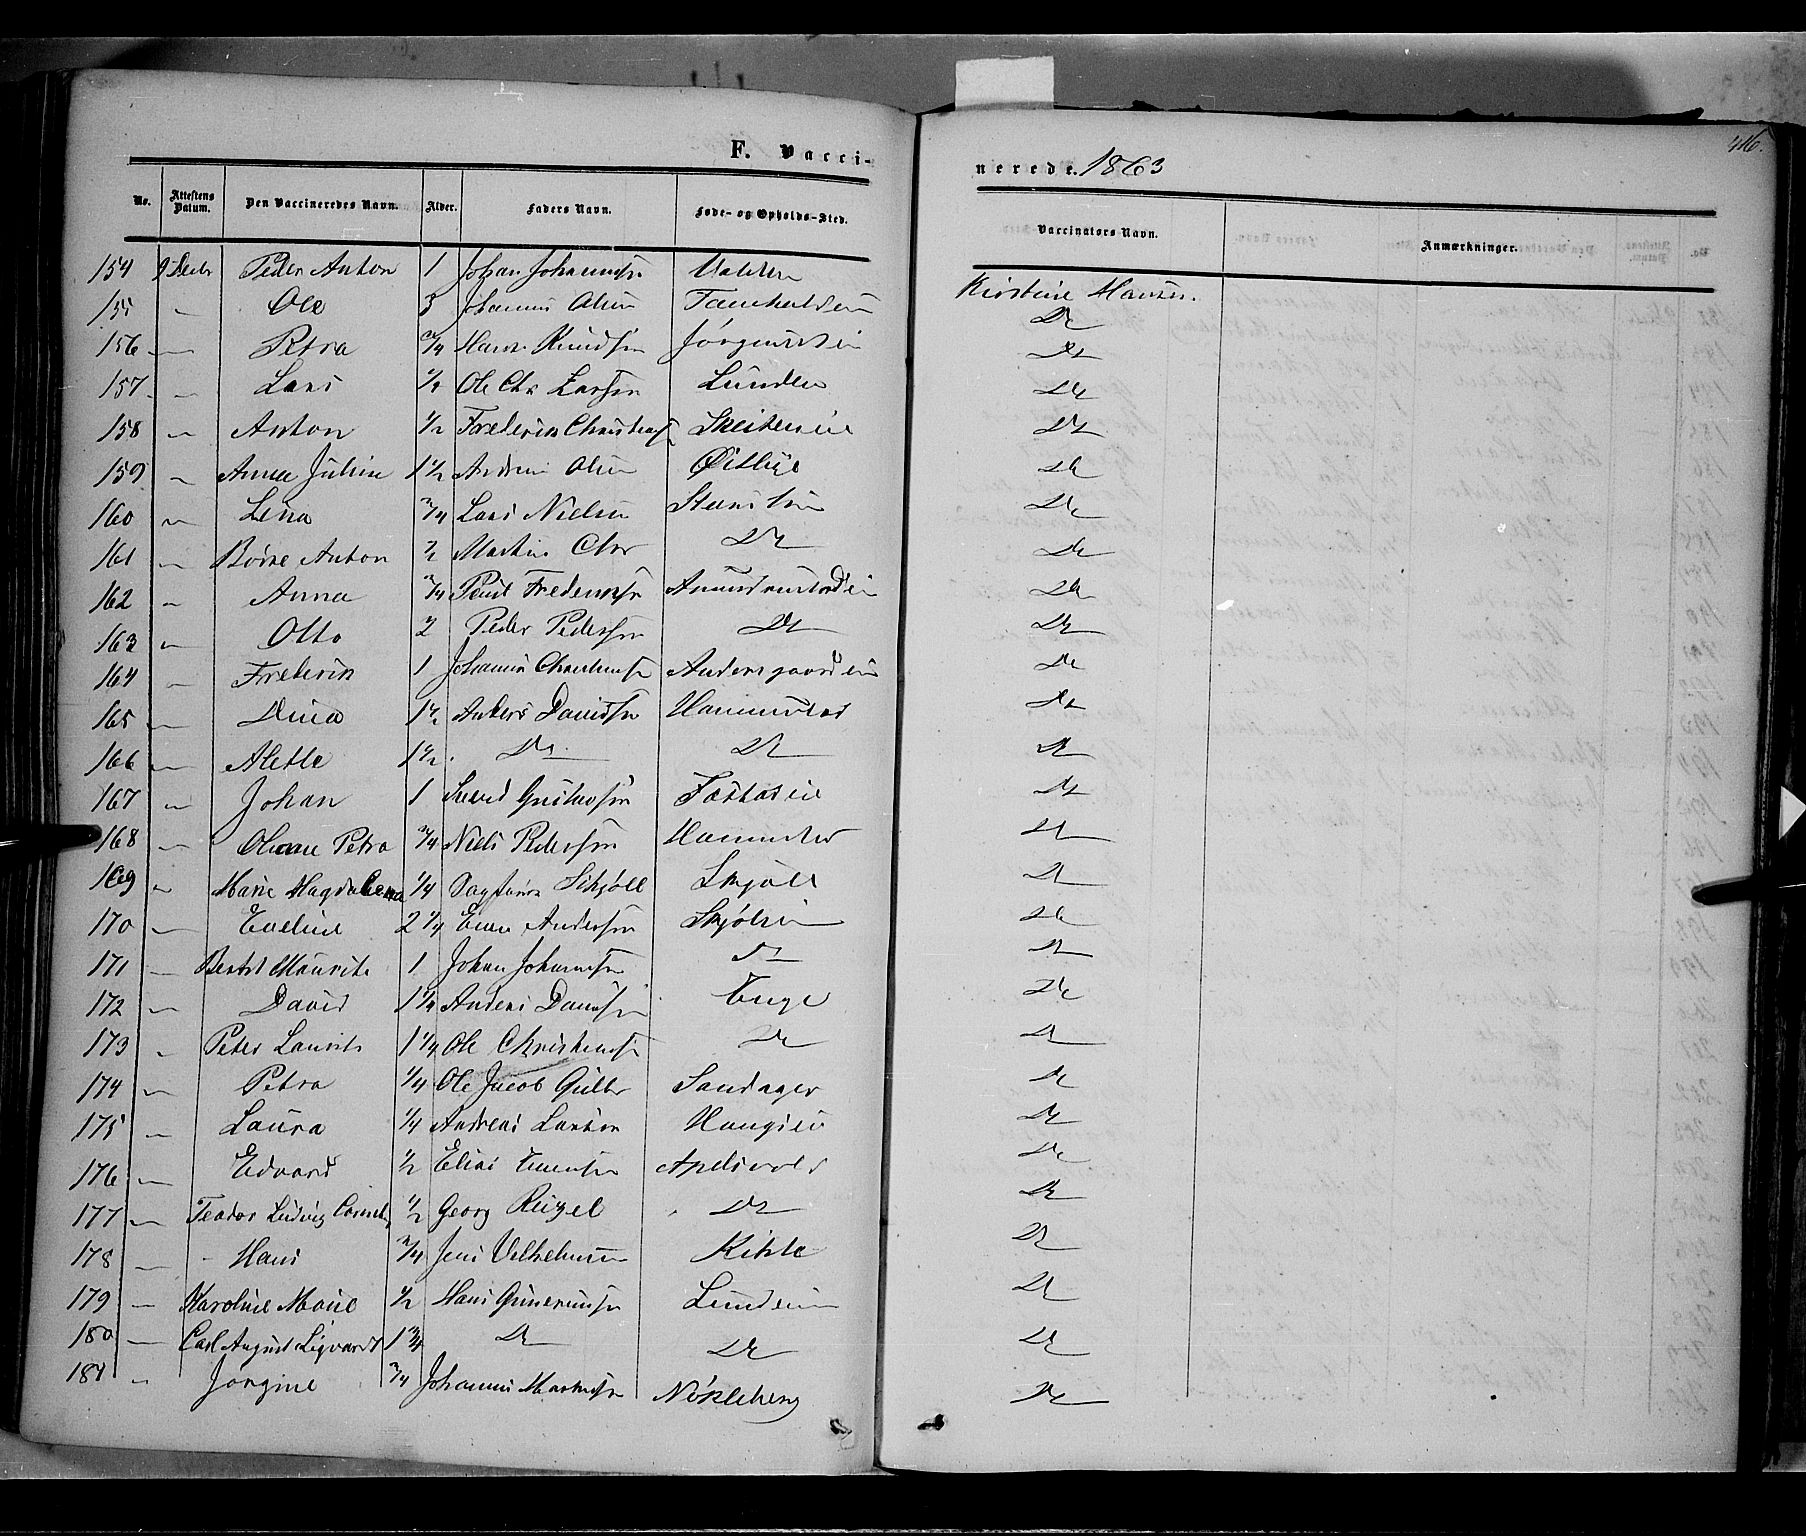 F. Vacci-
nerede. 1863
No. Attestens Datum. Den Vaccineredes Navn. Alder. Faders Navn. Føde- og Opholds-Sted.
Vaccinators Navn. Anmærkninger.
154 9 Decbr Peder Anton 1 Johan Johannsen Kirstine Hansen.
155 " Ole 3 Johannes Olsen De
156 " Petra 3/4 Hans Knudsen Jørgens De
157 " Lars 1/2 Ole Chr Larsen Lunden De
158 " Anton 1/2 Frederik Christens De
159 " Anna Juline 1 1/2 Andreas Olsen Østbye De
160 " Lena 3/4 Lars Nielsen De
161 " Børre Anton 1/2 Martin Chr De De
162 " Anna 3/4 Poul Frederiksen De
163 " Otto 2 Peder Pedersen De De
164 " Frederik 1 Johannes Christensen Andersgaardsei De
165 " Dina 1 1/2 Anders Davidsen Hammerstad De
166 " Alette 1 1/2 De De De
167 " Johan 1 Svend Gustavsen De
168 " Oleane Petra 3/4 Niels Pedersen Hammerstad De
169 " Marie Magdalena 1/4 Dagfinn Schjøll Skjøll De
170 " Eveline 2 1/4 Even Andersen De
171 " Bertel Maurits 1 Johan Johannsen De De
172 " David 1 1/4 Anders Davidsen Enge De
173 " Peter Laurits 1 1/4 Ole Christensen De De
174 " Petra 1/4 Ole Jacob Gulbr Sandager De
175 " Laura 1/4 Andreas Larsen Haugsei De
176 " Edvard 1/2 Elias Evensen Apelsvold De
177 " Teodor Ludvig Cornel 1/2 Georg Reigel De De
178 " Hans 3/4 Jens Vilhelmsen Kihle De
179 " Karoline Marie 1/2 Hans Gunerusen Lundeie De
180 " Carl August Sigvardt 1 3/4 De De De
181 " Jørgine 3/4 Johannes Martinsen Nøkleberg De